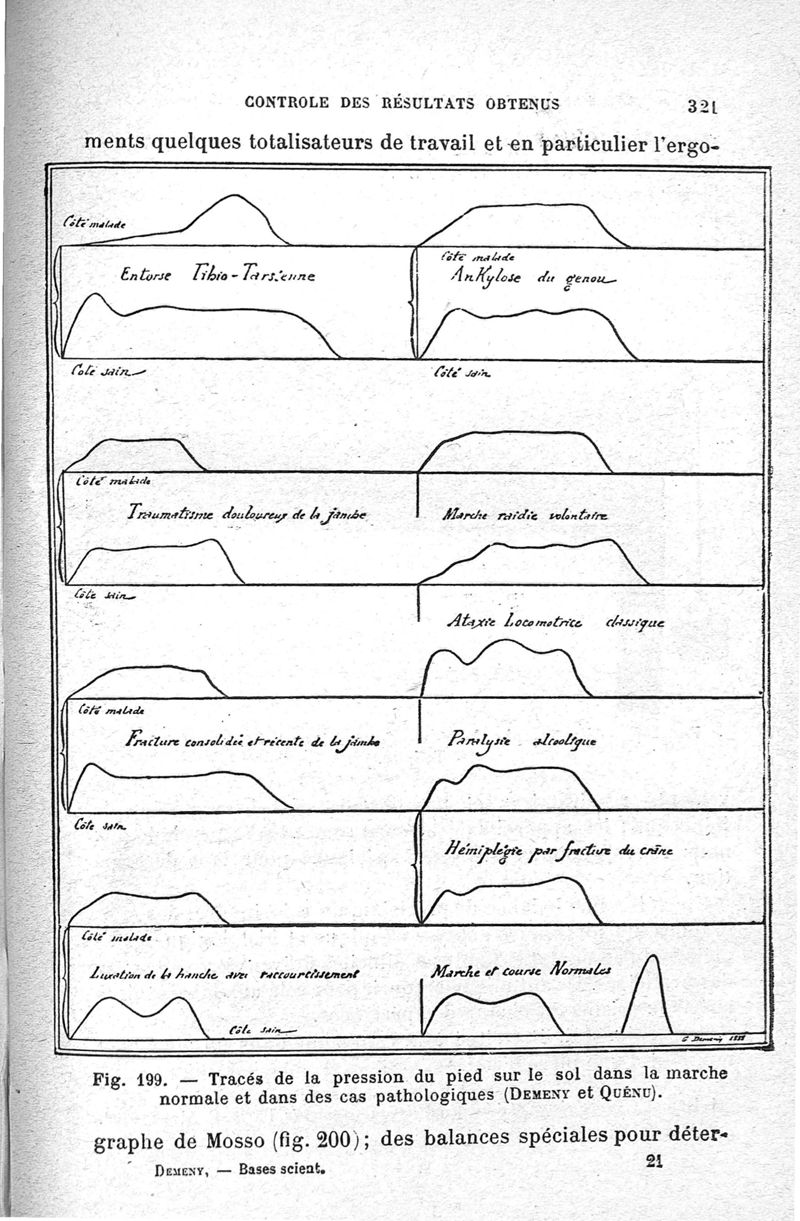 CONTROLE DES RÉSULTATS OBTENUS 321
ments quelques totalisateurs de travail et en particulier l'ergo-
Côté malade
Entorse Tibio-Tarsienne
Coté sain
Côté malade
Ankylose du genou
Côté sain
Côté malade
Traumatisme douloureux de la jambe
Côté sain
Marche raidie volontaire
Ataxie Locomotrice classique
Côté malade
Fracture consolidée et récente de la jambe
Côte sain
Paralysie alcoolique
Hémiplégie par fracture du crâne
Côté malade
Luxation de la hanche avec raccourcissement
Côté sain
Marche et course Normales
G Demeny 1888
Fig. 199. — Tracés de la pression du pied sur le sol dans la marche
normale et dans des cas pathologiques (DEMENY et QUÉNU).
graphe de Mosso (fig. 200); des balances spéciales pour déter-
DEMENY, — Bases scient. 21